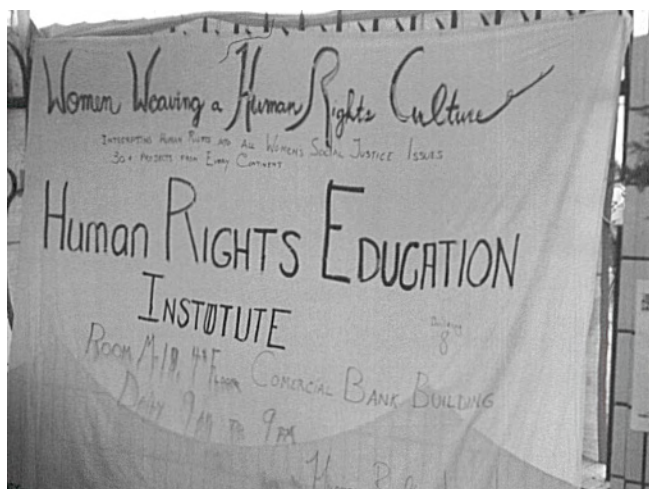 Women Weaving a Human Rights Culture
INTEGRATING HUMAN RIGHTS INTO ALL WOMEN'S SOCIAL JUSTICE ISSUES
30+ PROJECTS FROM EVERY CONTINENT
Human RIGHTS EDUCATION
INSTITUTE
8
ROOM M-18, 4th FLOOR COMERCIAL BANK BUILDING
DAILY 9 AM TO 9 PM
Human